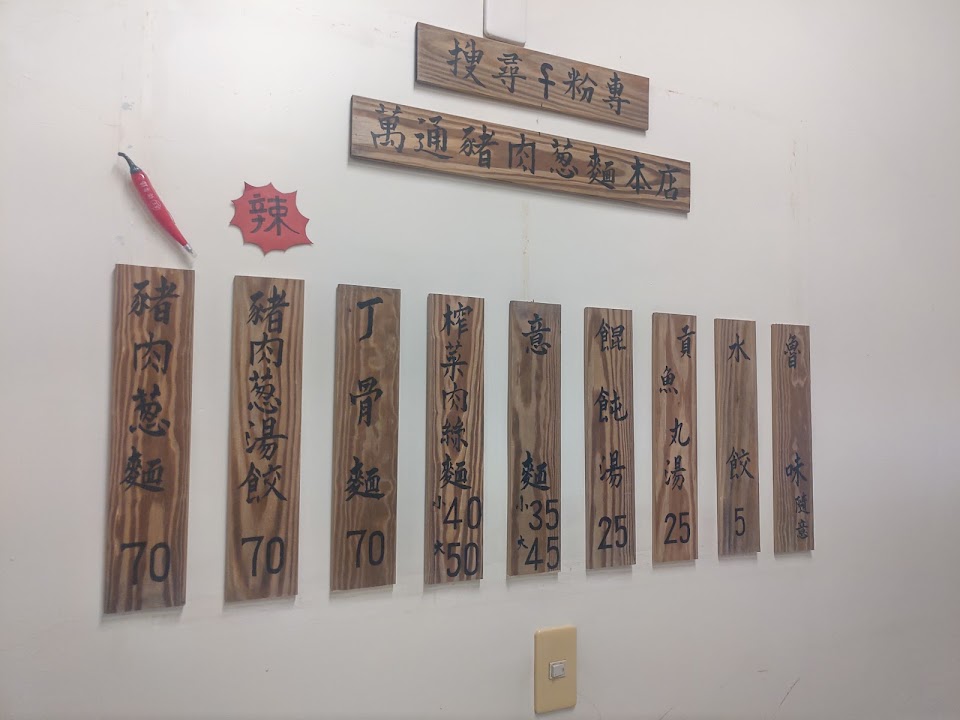 搜尋f粉專
萬通豬肉蔥麵本店
辣
豬肉蔥麵 70
豬肉蔥湯餃 70
丁骨麵 70
榨菜肉絲麵 小40 大50
意麵 小35 大45
餛飩湯 25
貢魚丸湯 25
水餃 5
魯味 隨意